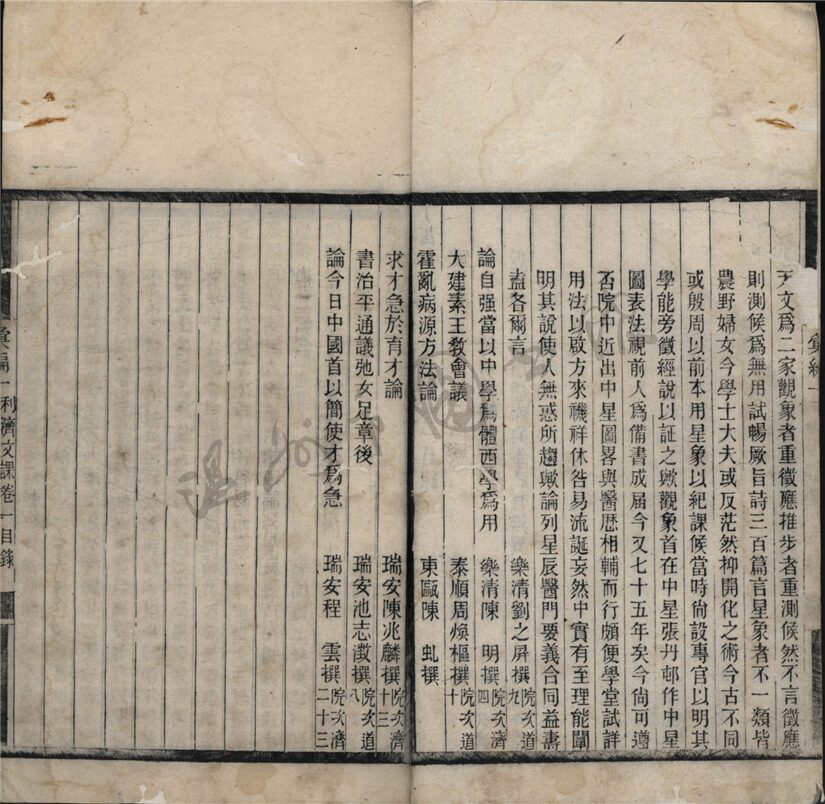 彙編一
天文爲二家觀象者重徵應推步者重測候然不言徵應
則測候爲無用試暢厥旨詩三百篇言星象者不一類皆
農野婦女今學士大夫或反茫然抑開化之術今古不同
或殷周以前本用星象以紀課候當時尙設專官以明其
學能旁徵經說以証之歟觀象首在中星張丹邨作中星
圖表法視前人爲備書成届今又七十五年矣今尙可遵
否院中近出中星圖畧與醫歷相輔而行頗便學堂試詳
用法以啟方來禨祥休咎易流誕妄然中實有至理能闡
明其說使人無惑所趨歟論列星辰醫門要義合同益壽
盍各爾言
樂清劉之屏撰 院次道九
論自强當以中學爲體西學爲用
樂清陳 明撰 院次濟四
大建素王敎會議
泰順周煥樞撰 院次道十
霍亂病源方法論
東甌陳 虬撰
求才急於育才論
瑞安陳兆麟撰 院次濟十三
書治平通議弛女足章後
瑞安池志澂撰 院次道八
論今日中國首以簡使才爲急
瑞安程 雲撰 院次濟二十三
彙編一利濟文課卷一目錄